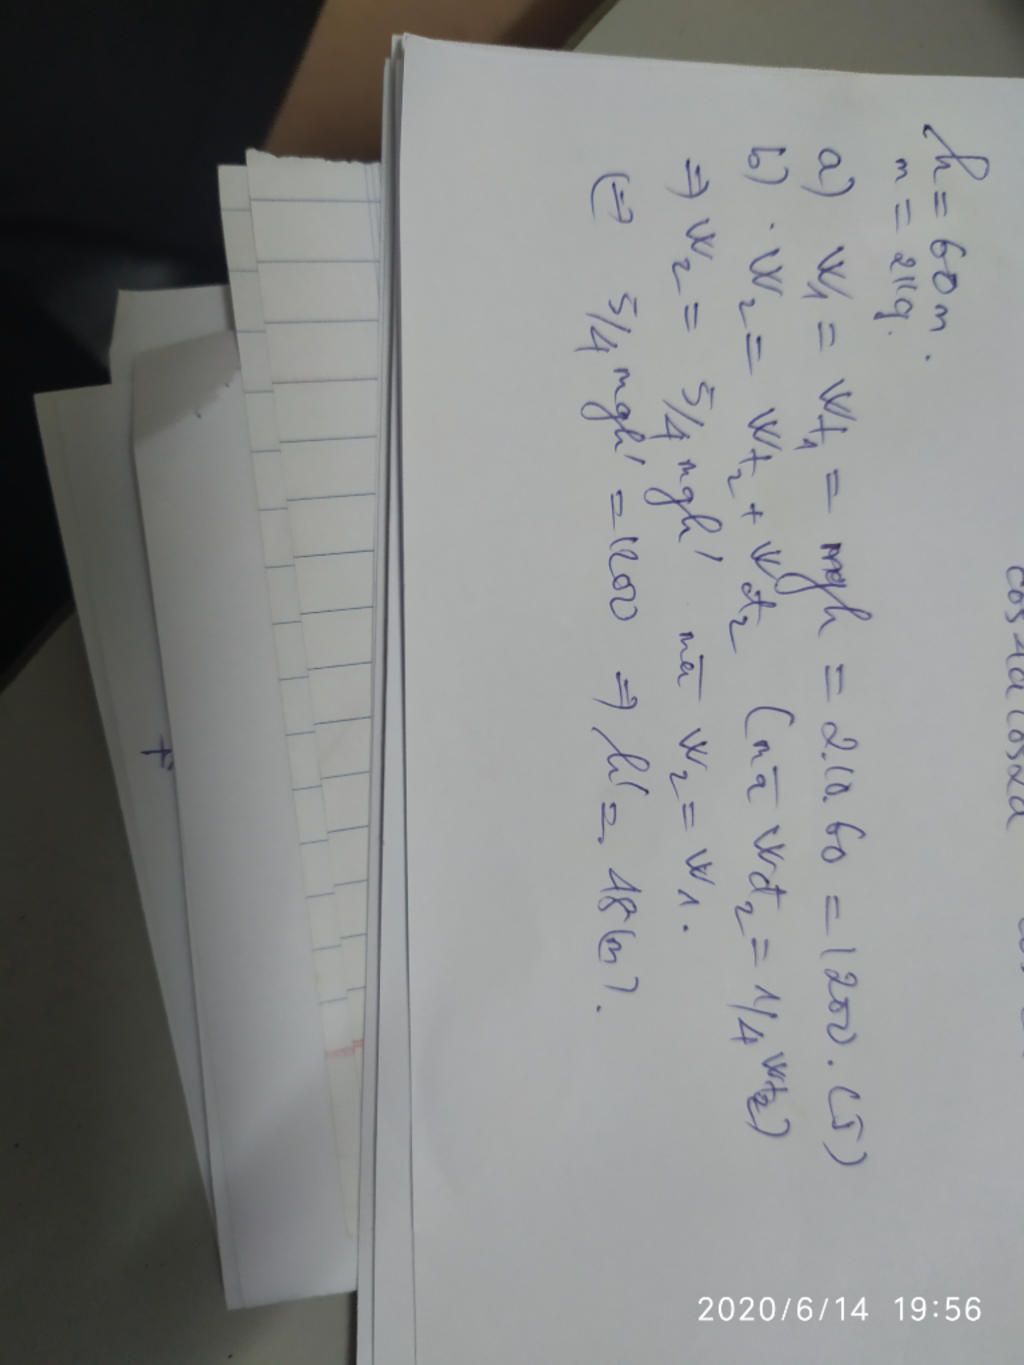 cos4a cos2a
h = 60m.
m = 2kg.
a) W1 = Wt1 = mgh = 2.10.60 = 1200. (J)
b) . W2 = Wt2 + Wđ2 (mà Wđ2 = 1/4 Wt2)
=> W2 = 5/4 mgh' mà W2 = W1.
(=) 5/4 mgh' = 1200 => h' = 48(m).
2020/6/14 19:56